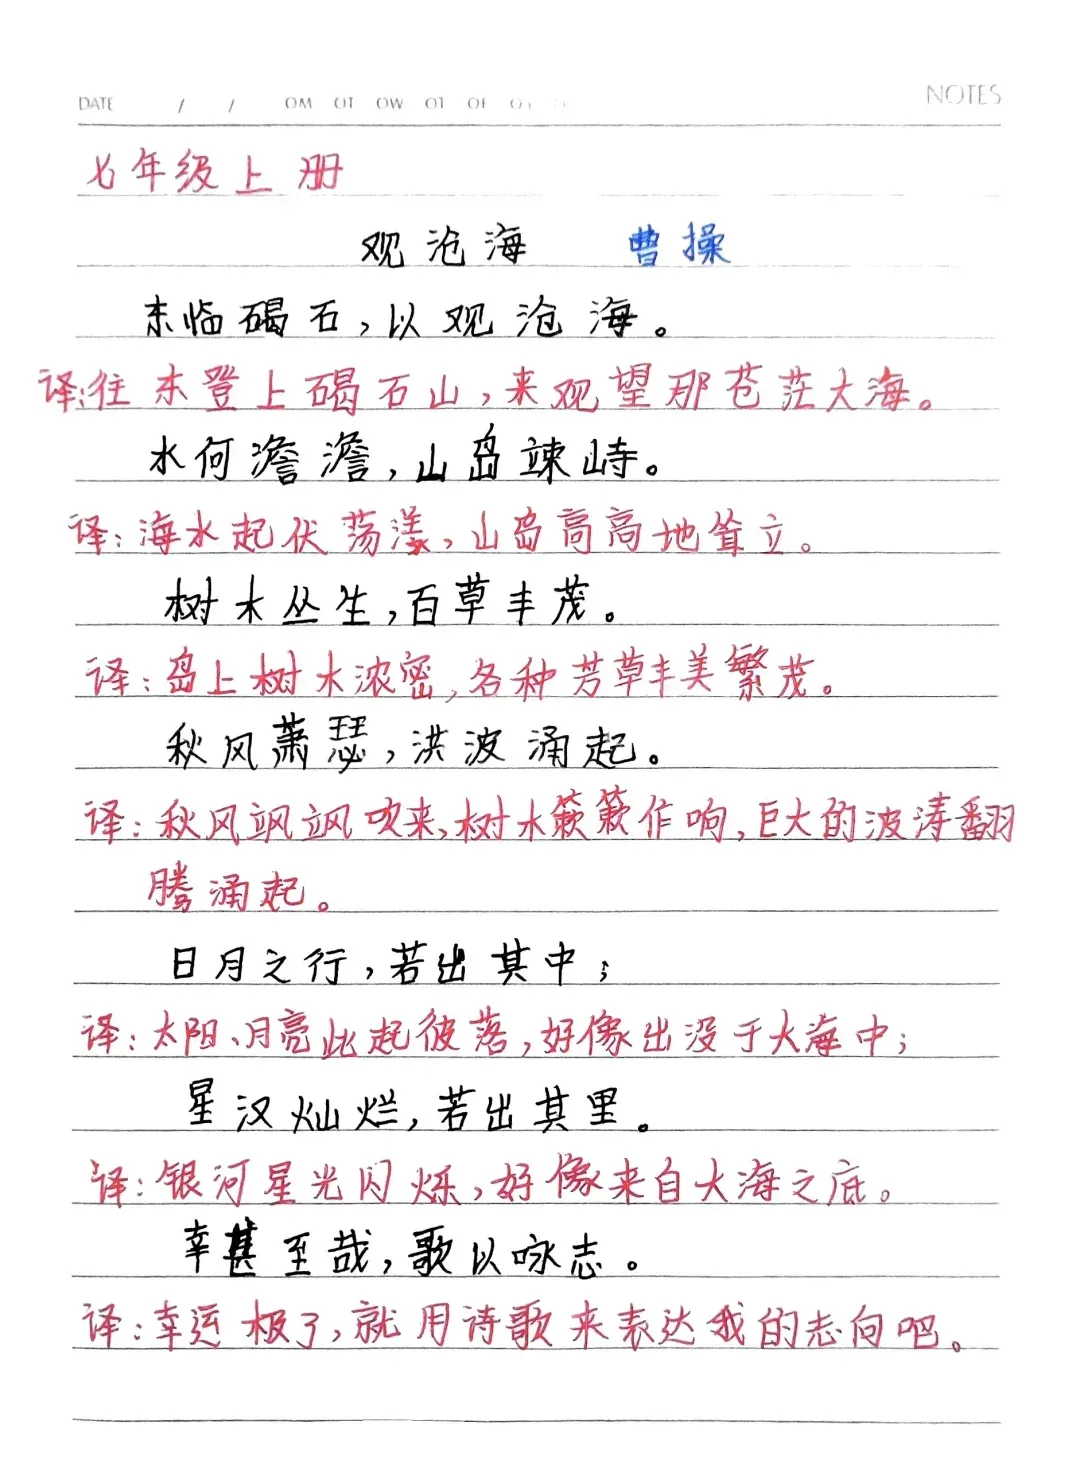 DATE / / OM OT OW OT OF
NOTES
七年级上册
观沧海 曹操
东临碣石，以观沧海。
译:往东登上碣石山，来观望那苍茫大海。
水何澹澹，山岛竦峙。
译：海水起伏荡漾，山岛高高地耸立。
树木丛生，百草丰茂。
译：岛上树木浓密，各种芳草丰美繁茂。
秋风萧瑟，洪波涌起。
译：秋风飒飒吹来，树木簌簌作响，巨大的波涛翻
腾涌起。
日月之行，若出其中；
译：太阳、月亮此起彼落，好像出没于大海中；
星汉灿烂，若出其里。
译：银河星光闪烁，好像来自大海之底。
幸甚至哉，歌以咏志。
译：幸运极了，就用诗歌来表达我的志向吧。